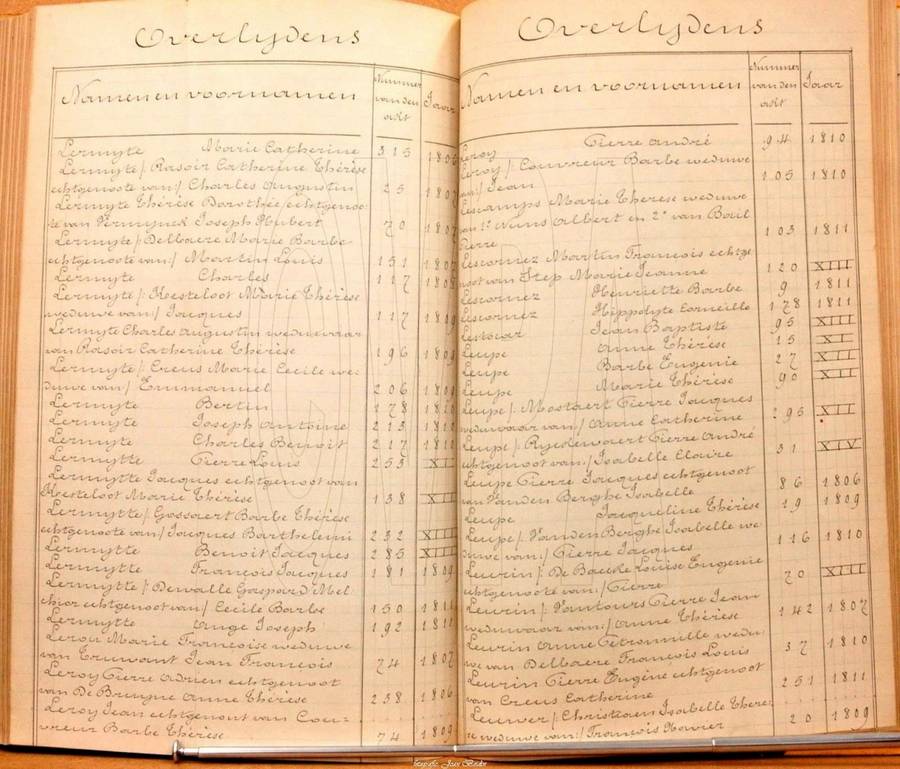 Overlijdens
Namen en voornamen Nummer van den akt Jaar
Lermyte Marie Catherine 315 1806
Lermyte/: Rasoir Catherine Thérèse
echtgenoote van:/ Charles Augustin 25 1807
Lermyte Thérèse Dorothée echtgenoo-
te van Vermynck Joseph Hubert 70 1807
Lermyte/: Delbaere Marie Barbe
echtgenoote van:/ Martin Louis 151 1807
Lermyte Charles 117 1808
Lermyte/: Kesteloot Marie Thérèse
weduwe van/ Jacques 117 1809
Lermyte Charles Augustin weduwaar
van Rasoir Catherine Thérèse 196 1809
Lermyte/: Creus Marie Cecile we-
duwe van/ Emmanuel 206 1809
Lermyte Bertin 178 1810
Lermyte Joseph Antoine 213 1810
Lermyte Charles Benoit 217 1810
Lermytte Pierre Louis 253 XII
Lermytte Jacques echtgenoot van
Kesteloot Marie Thérèse 138 XII
Lermytte/: Gossaert Barbe Thérèse
echtgenoote van/ Jacques Barthelemi 232 XIII
Lermytte Benoit Jacques 285 XIII
Lermytte François Jacques 181 1809
Lermytte/: Dewalle Gaspard Mel-
chior echtgenoot van/ Cecile Barbe 150 1811
Lermytte Ange Joseph 192 1811
Lerou Marie Françoise weduwe
van Truwant Jean François 74 1807
Leroy Pierre Adrien echtgenoot
van De Bruyne Anne Thérèse 238 1806
Leroy Jean echtgenoot van Cou-
vreur Barbe Thérèse 74 1809
Overlijdens
Namen en voornamen Nummer van den akt Jaar
Leroy Pierre André 94 1810
Leroy/: Couvreur Barbe weduwe
van:/ Jean 105 1810
Lescamps Marie Therese weduwe
van 1° Nuns Albert en 2° van Bail
Pierre 103 1811
Lescornez Martin François echtge
noot van Step Marie Jeanne 120 XIII
Lescornez Henriette Barbe 9 1811
Lescornez Hippolyte Corneille 178 1811
Lestocar Jean Baptiste 95 XIII
Leupe Anne Thérèse 15 XI
Leupe Barbe Eugenie 27 XII
Leupe Marie Thérèse 90 XII
Leupe/: Mostaert Pierre Jacques
weduwaar van:/ Anne Catherine 295 XII
Leupe/: Ryckewaert Pierre André
echtgenoot van:/ Isabelle Claire 31 XIV
Leupe Pierre Jacques echtgenoot
van Vanden Berghe Isabelle 86 1806
Leupe Jacqueline Thérèse 19 1809
Leupe/: Vanden Berghe Isabelle we
duwe van:/ Pierre Jacques 116 1810
Leurin/: De Baecke Louise Eugenie
echtgenoote van:/ Pierre 70 XIII
Leurin/: Vantours Pierre Jean
weduwaar van:/ Anne Thérèse 142 1807
Leurin Anne Pétronille wedu-
we van Delbaere François Louis 37 1810
Leurin Pierre Eugène echtgenoot
van Creus Catherine 251 1811
Leuwer/: Christiaen Isabelle There-
se weduwe van:/ François Xavier 20 1809
fotografie: Joan Border